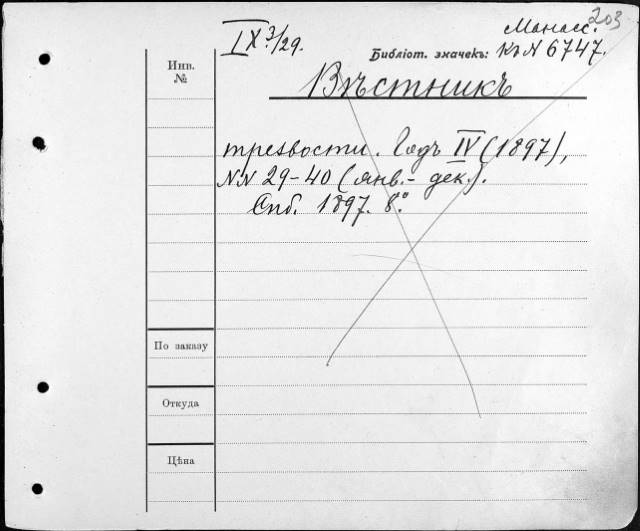 203
IX 3/29.
Манасс.
Библіот. значекъ: къ N 6747.
Инв.
№
Вѣстникъ
трезвости. Годъ IV (1897),
NN 29-40 (янв.- дек.).
Спб. 1897. 8.º
По заказу
Откуда
Цѣна